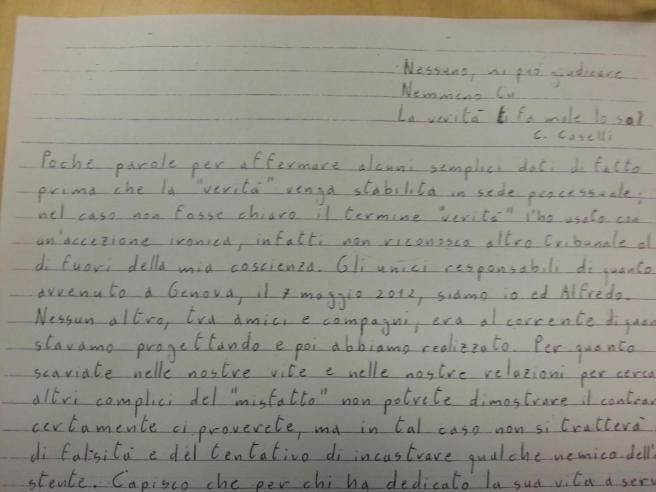 Nessuno, mi può giudicare
Nemmeno tu
La verità ti fa male lo so!
C. Caselli
Poche parole per affermare alcuni semplici dati di fatto
prima che la "verità" venga stabilita in sede processuale;
nel caso non fosse chiaro il termine "verità" l'ho usato con
un'accezione ironica, infatti non riconosco altro tribunale al
di fuori della mia coscienza. Gli unici responsabili di quanto
avvenuto a Genova, il 7 maggio 2012, siamo io ed Alfredo.
Nessun altro, tra amici e compagni, era al corrente di quan
stavamo progettando e poi abbiamo realizzato. Per quanto
scaviate nelle nostre vite e nelle nostre relazioni per cerca
altri complici del "misfatto" non potrete dimostrare il contrar
certamente ci proverete, ma in tal caso non si tratterà
di falsità e del tentativo di incastrare qualche nemico dell'
stente. Capisco che per chi ha dedicato la sua vita a serv